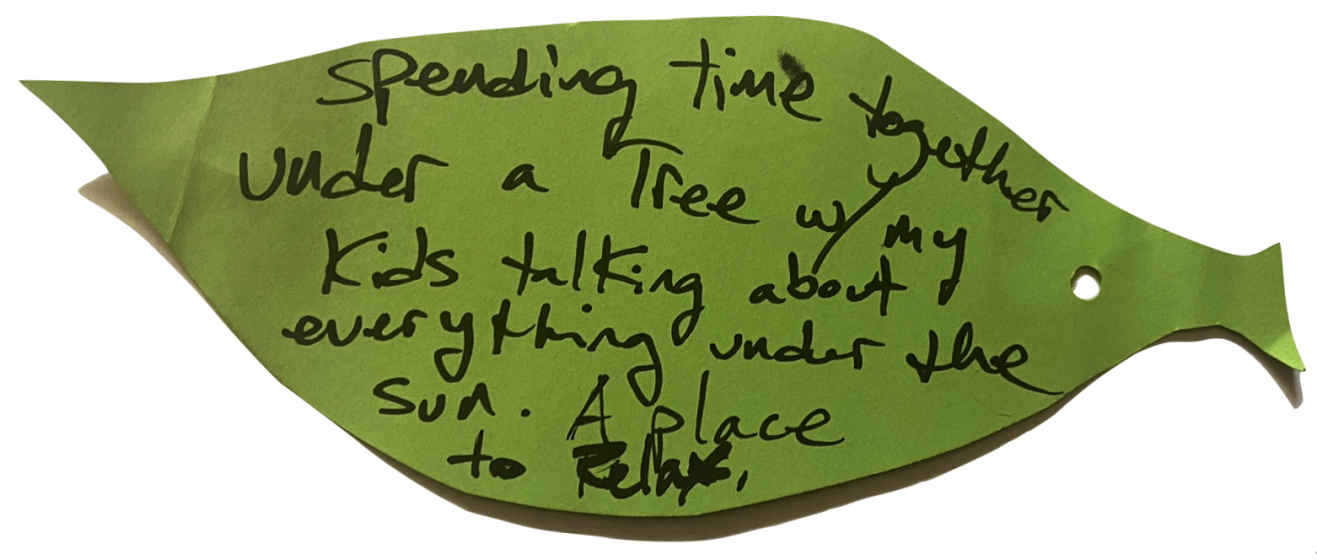 Spending time together
under a Tree w/ my
Kids talking about
everything under the
sun. A place
to Relax.